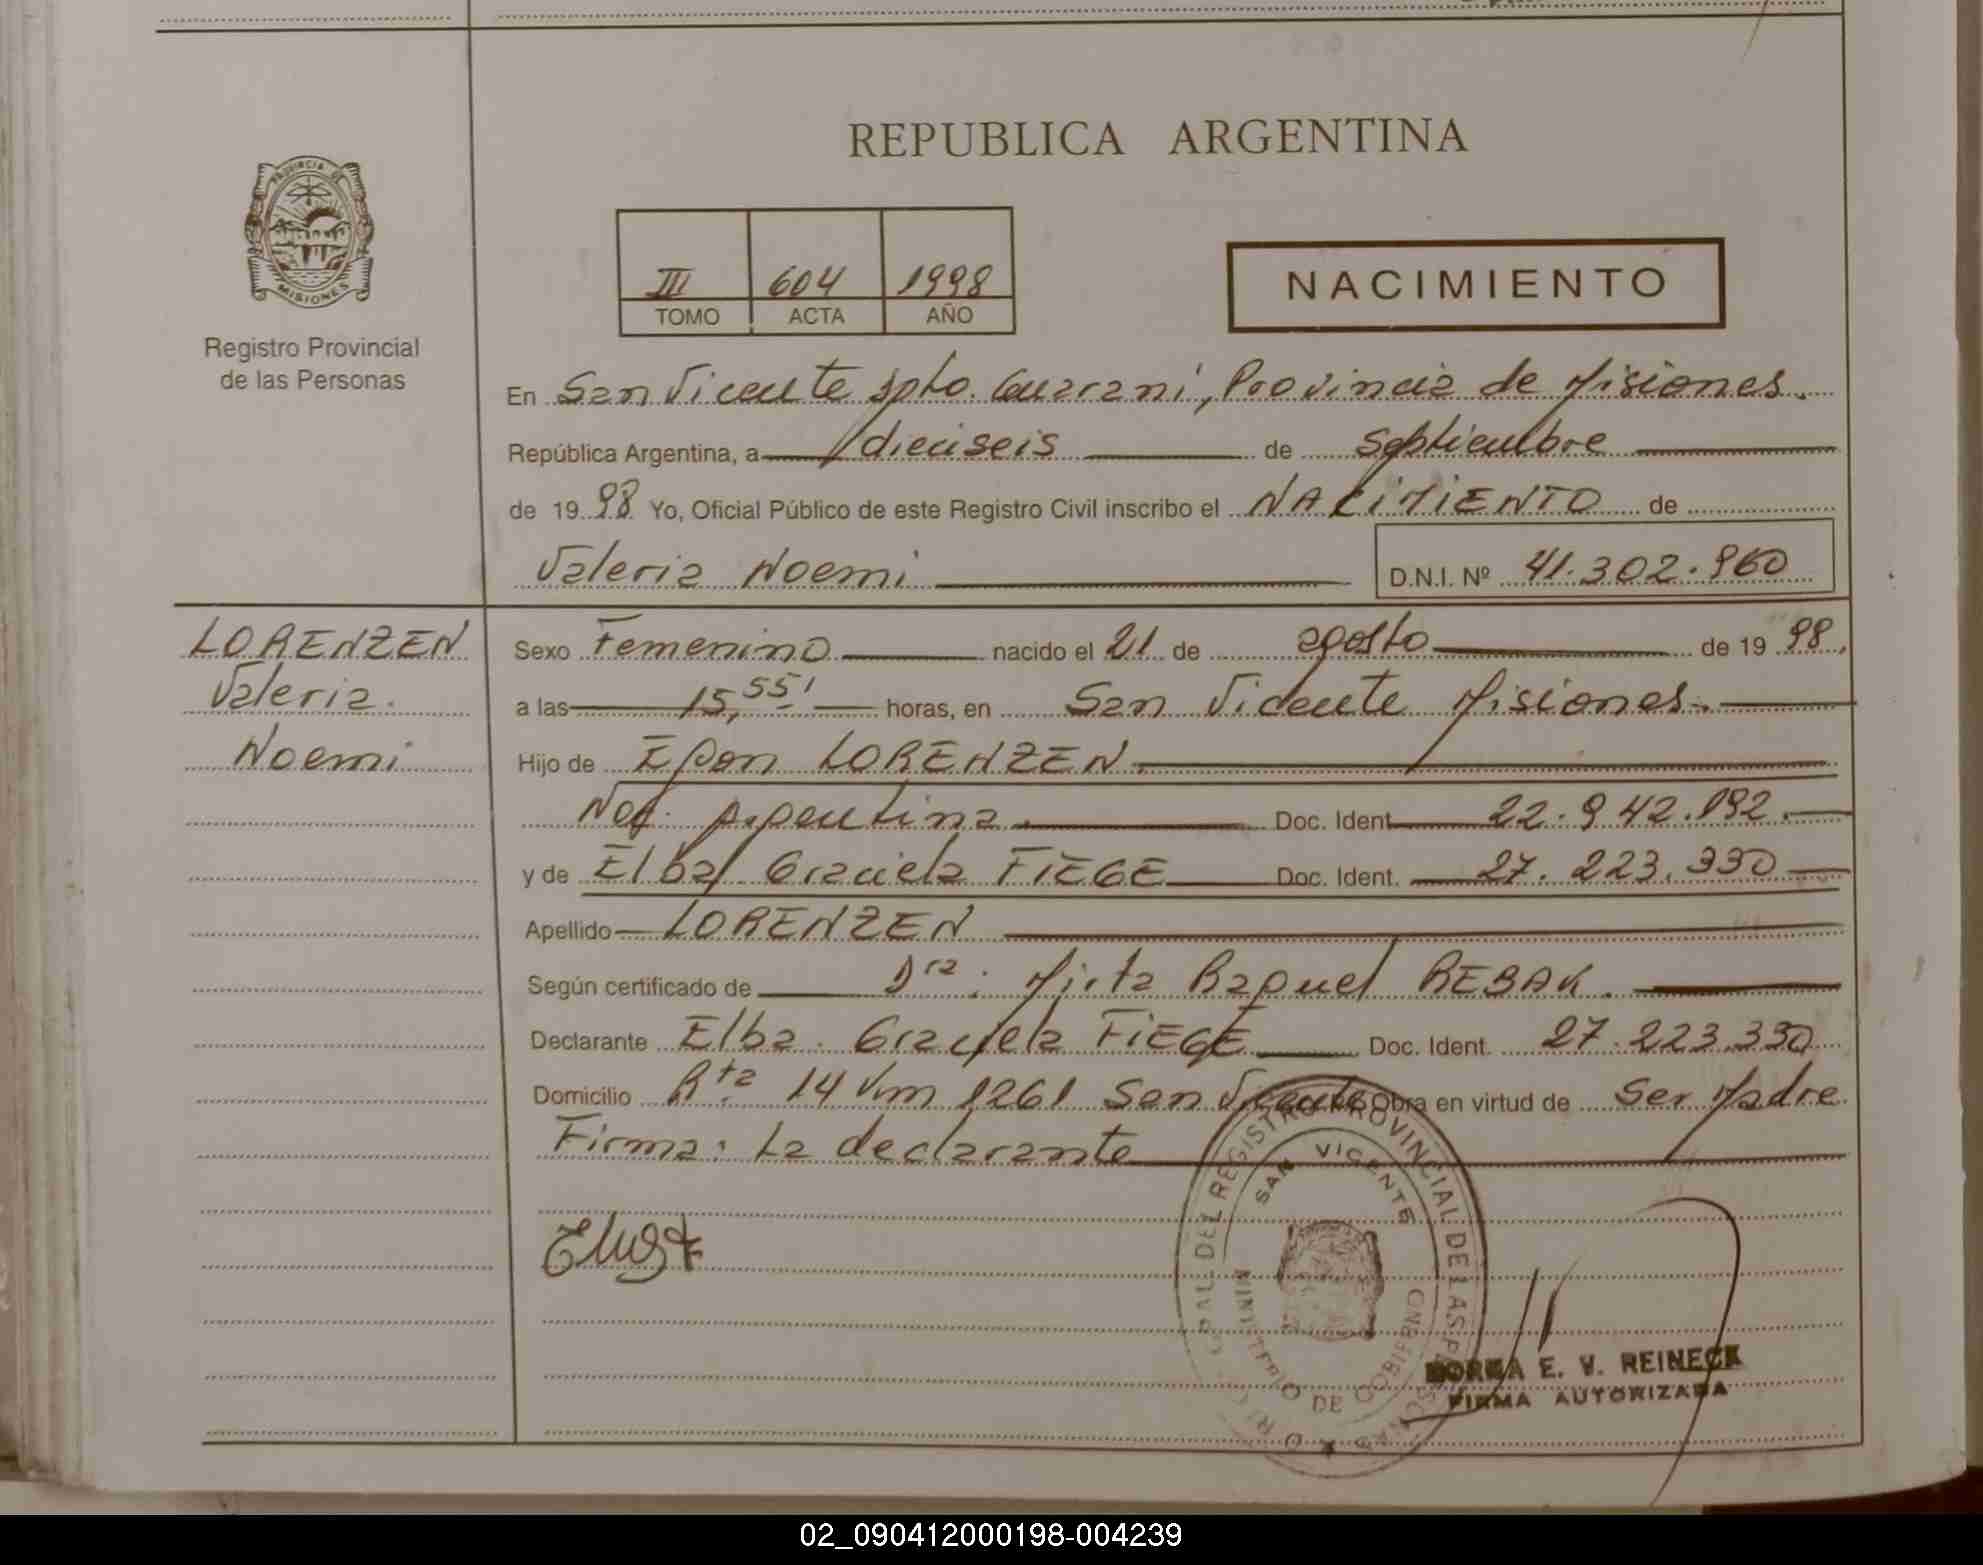 REPUBLICA ARGENTINA
PROVINCIA DE
MISIONES
Registro Provincial
de las Personas
III 604 1998
TOMO ACTA AÑO
NACIMIENTO
En San Vicente Dpto. Guarani, Provincia de Misiones.
República Argentina, a dieciseis de Septiembre
de 1998 Yo, Oficial Público de este Registro Civil inscribo el NACIMIENTO de
Valeria Noemi D.N.I. Nº 41.302.960
LORENZEN
Valeria
Noemi
Sexo Femenino nacido el 21 de agosto de 1998,
a las 15,55' horas, en San Vicente Misiones.
Hijo de Egon LORENZEN.
Nac. Argentina. Doc. Ident. 22.942.192.
y de Elba Graciela FIEGE Doc. Ident. 27.223.330
Apellido LORENZEN
Según certificado de Dra: Mirta Raquel REBAK.
Declarante Elba Graciela FIEGE Doc. Ident. 27.223.330
Domicilio Rta 14 Km 1261 San Vicente Obra en virtud de Ser Madre
Firma: La declarante
REGISTRO PROVINCIAL DE LAS PERSONAS
SAN VICENTE
MINISTERIO DE GOBIERNO
E. V. REINECK
FIRMA AUTORIZADA
02_090412000198-004239